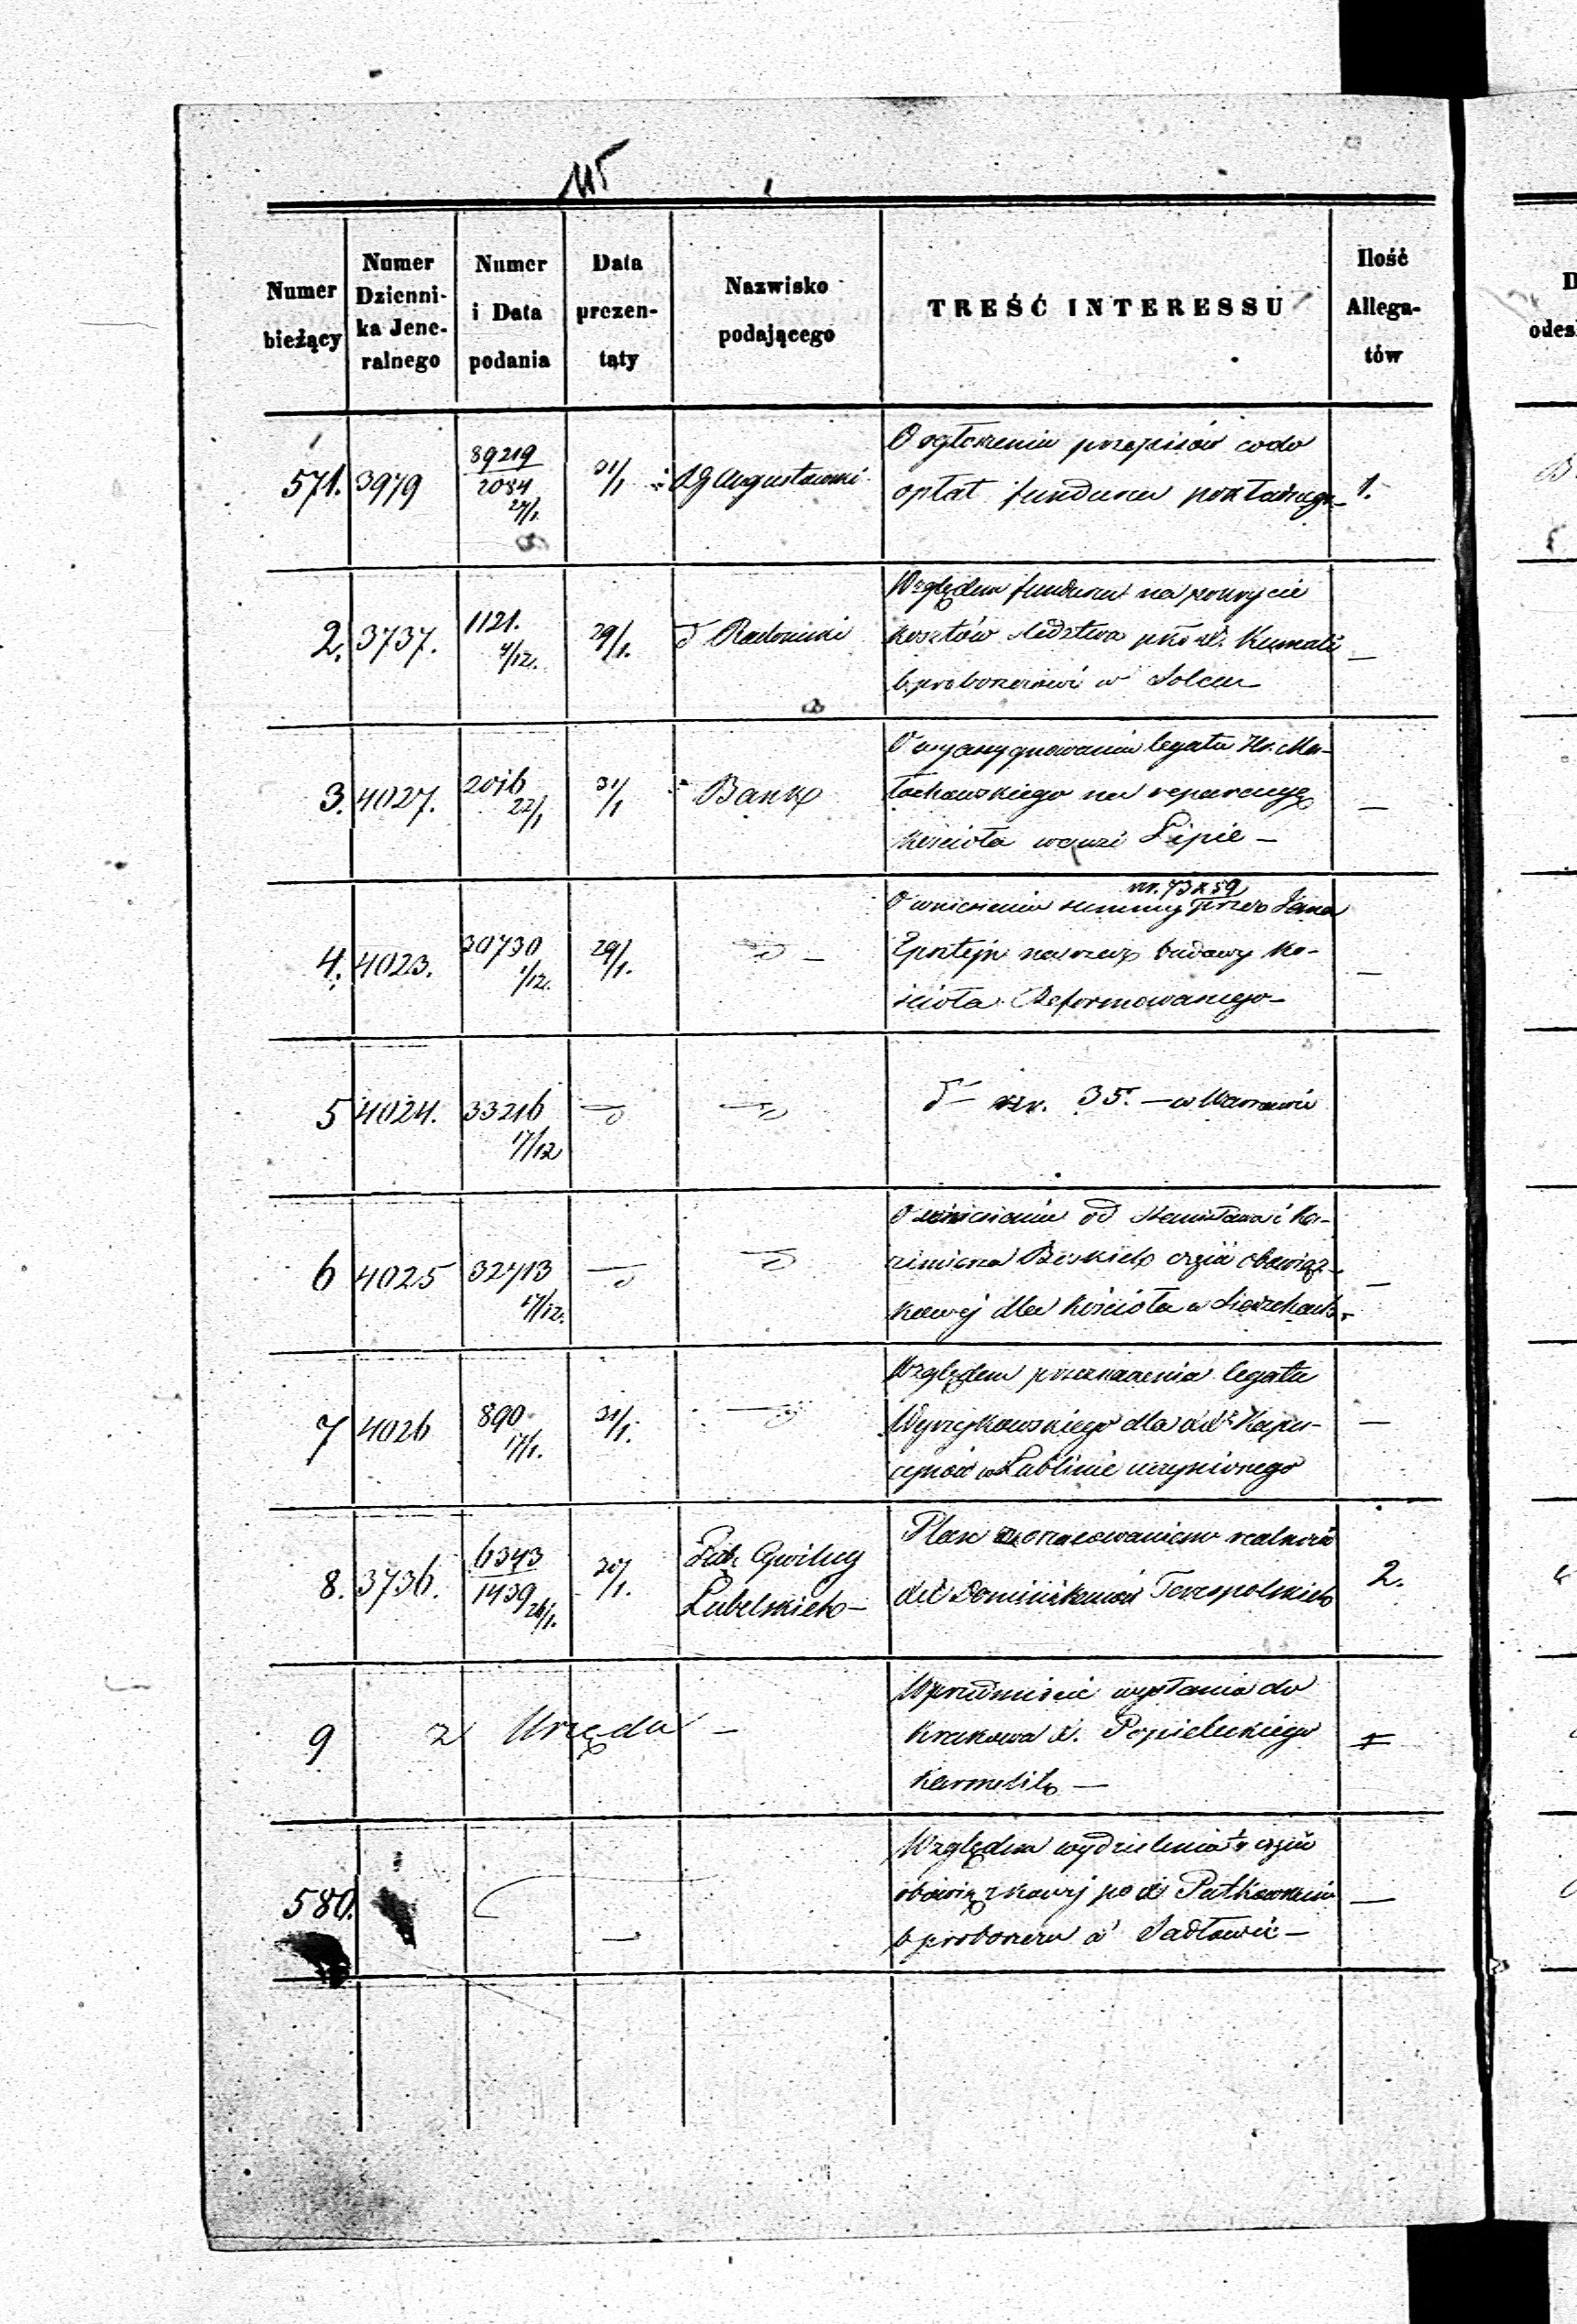 115
Numer bieżący
Numer Dzienni-
ka Jene-
ralnego
Numer
i Data
podania
Data
prezen-
taty
Nazwisko
podającego
TREŚĆ INTERESSU
Ilość
Allega-
tów
571. 3979 89219
2084
27/1. 31/1 RG Augustowski
O ogłoszeniu przepisów co do
opłat funduszu 1.
2. 3737. 1121.
4/12. 29/1. d Radomski
Względem funduszu na pokrycie
kosztów śledztwa pko X.
b. proboszczowi w Solcu —
3. 4027. 2016
22/1 31/1 Bank
O wyasygnowaniu legatu Hr. Ma-
łachowskiego na reparacyę
kościoła we wsi Lipie — —
4. 4023. 30730
1/12. 29/1. d —
O wniesieniu summy rsr. 73 k 59 przez Jana
Epsztejn na rzecz budowy ko-
ścioła Reformowanego — —
5 4024. 33216
17/12 d d
d rsr. 35. — w Warszawie
6 4025 32713
17/12. d d
O wniesieniu od Stanisława i Ka-
zimierza części obowiąz-
kowej dla kościoła w —
7 4026 890
17/1. 31/1. d
Względem przeznaczenia legatu
Wyrzykowskiego dla Kapu-
cynów w Lublinie uczynionego —
8. 3736. 6343
1439 26/1. 30/1. Tryb. Cywilny
Lubelski —
Plan z oszacowaniem realności
XX Dominikanów Terespolskich 2.
9 z Urzędu —
W przedmiocie wysłania do
Krakowa X. Popieleckiego
Karmelity —
580.
Względem wydzielenia części
obowiązkowej po X.
b. proboszczu w —
D
odes